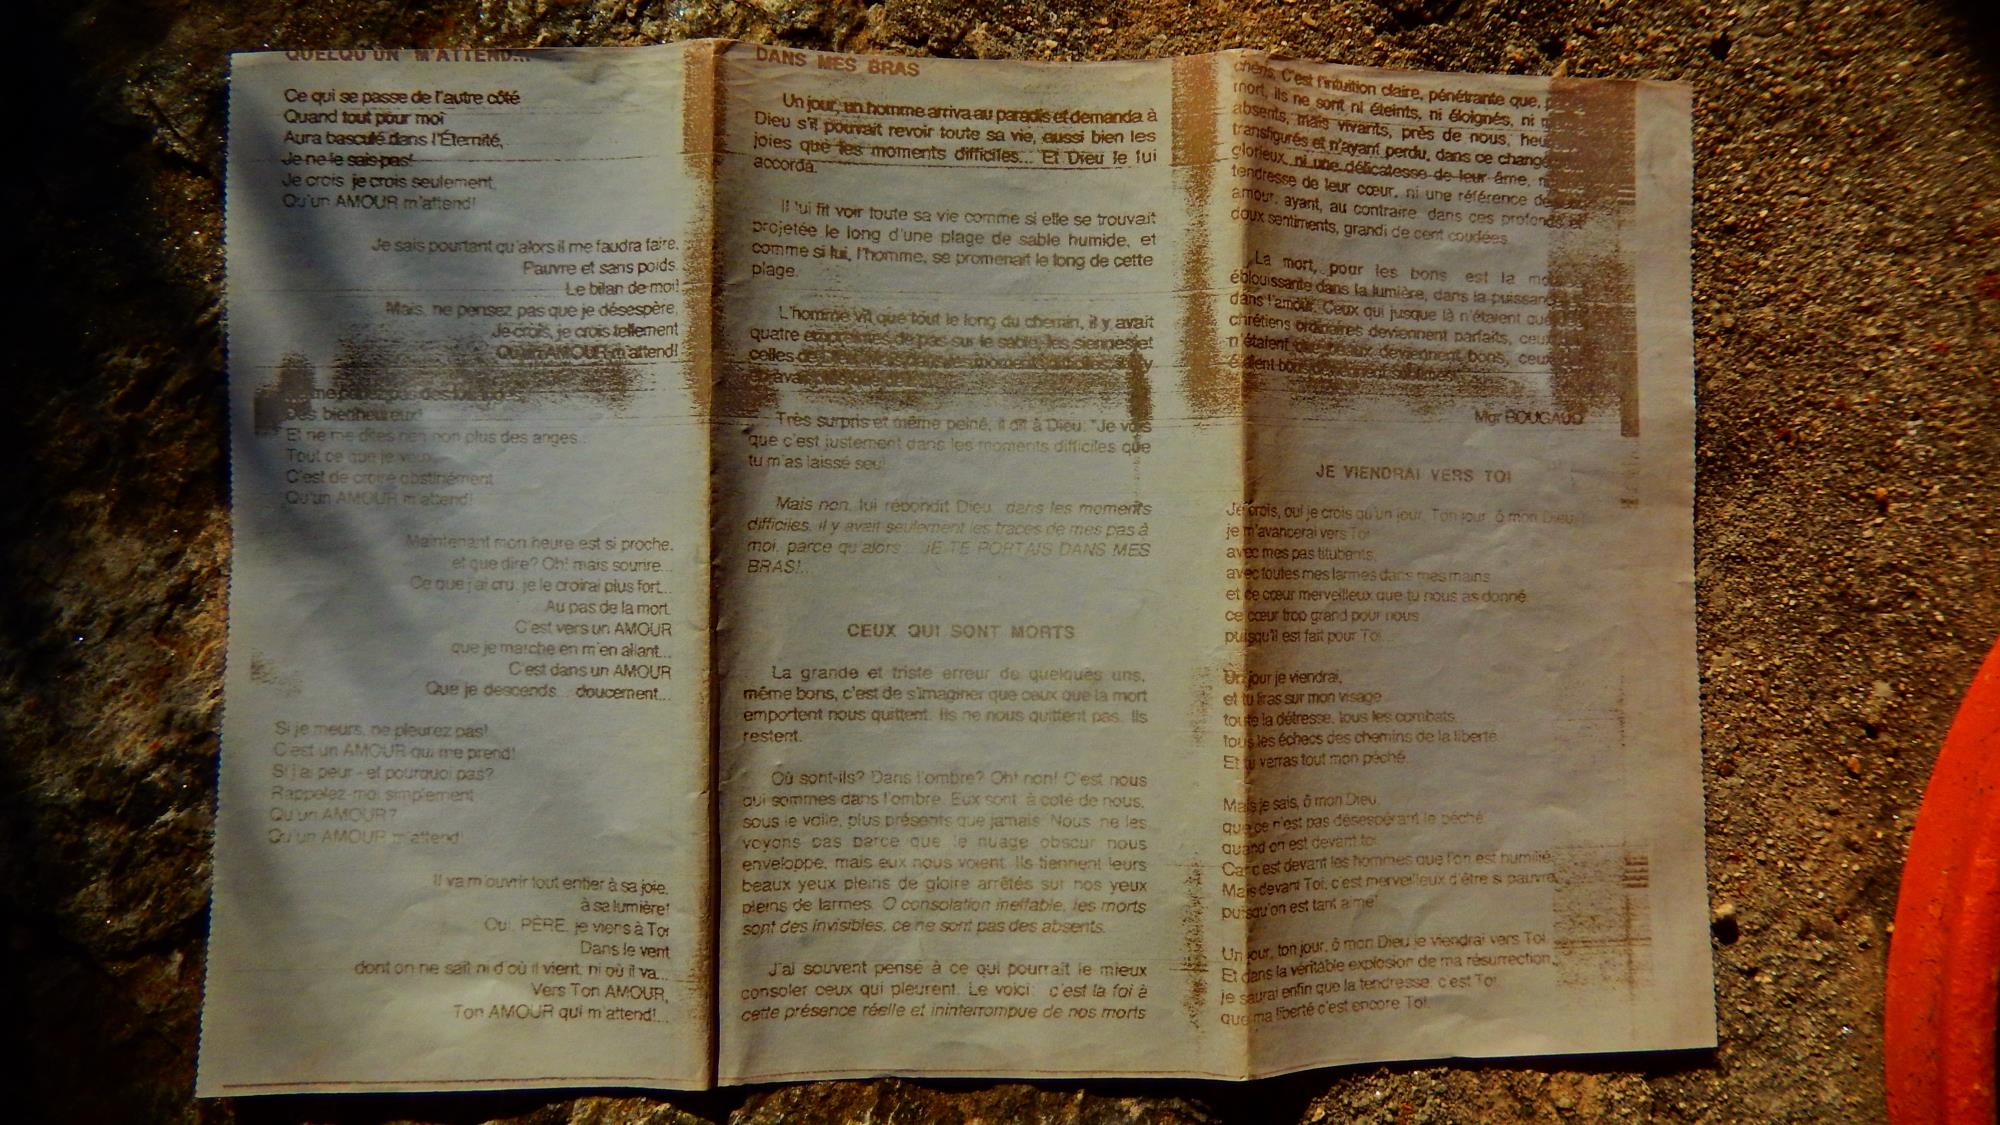 QUELQU'UN M'ATTEND...
Ce qui se passe de l'autre côté
Quand tout pour moi
Aura basculé dans l'Éternité,
Je ne le sais pas!
Je crois, je crois seulement,
Qu'un AMOUR m'attend!
Je sais pourtant qu'alors il me faudra faire,
Pauvre et sans poids,
Le bilan de moi!
Mais, ne pensez pas que je désespère,
Je crois, je crois tellement
Qu'un AMOUR m'attend!
des bienheureux!
Et ne me dites rien non plus des anges...
Tout ce que je veux,
C'est de croire obstinément
Qu'un AMOUR m'attend!
Maintenant mon heure est si proche,
et que dire? Oh! mais sourire...
Ce que j'ai cru, je le croirai plus fort...
Au pas de la mort.
C'est vers un AMOUR
que je marche en m'en allant...
C'est dans un AMOUR
Que je descends... doucement...
Si je meurs, ne pleurez pas!
C'est un AMOUR qui me prend!
Si j'ai peur - et pourquoi pas?
Rappelez-moi simplement
Qu'un AMOUR?
Qu'un AMOUR m'attend!
Il va m'ouvrir tout entier à sa joie,
à sa lumière!
Oui, PÈRE, je viens à Toi
Dans le vent
dont on ne sait ni d'où il vient, ni où il va...
Vers Ton AMOUR,
Ton AMOUR qui m'attend!...
DANS MES BRAS
Un jour, un homme arriva au paradis et demanda à
Dieu s'il pouvait revoir toute sa vie, aussi bien les
joies que les moments difficiles... Et Dieu le lui
accorda.
Il lui fit voir toute sa vie comme si elle se trouvait
projetée le long d'une plage de sable humide, et
comme si lui, l'homme, se promenait le long de cette
plage.
L'homme vit que tout le long du chemin, il y avait
quatre empreintes de pas sur le sable, les siennes et
celles de Dieu. Mais dans les moments difficiles, il n'y
Très surpris et même peiné, il dit à Dieu: "Je vois
que c'est justement dans les moments difficiles que
tu m'as laissé seul
Mais non, lui répondit Dieu, dans les moments
difficiles, il y avait seulement les traces de mes pas à
moi, parce qu'alors... JE TE PORTAIS DANS MES
BRAS!...
CEUX QUI SONT MORTS
La grande et triste erreur de quelques uns,
même bons, c'est de s'imaginer que ceux que la mort
emportent nous quittent. Ils ne nous quittent pas. Ils
restent.
Où sont-ils? Dans l'ombre? Oh! non! C'est nous
qui sommes dans l'ombre. Eux sont à coté de nous,
sous le voile, plus présents que jamais. Nous ne les
voyons pas parce que le nuage obscur nous
enveloppe, mais eux nous voient. Ils tiennent leurs
beaux yeux pleins de gloire arrêtés sur nos yeux
pleins de larmes. O consolation ineffable, les morts
sont des invisibles, ce ne sont pas des absents.
J'ai souvent pensé à ce qui pourrait le mieux
consoler ceux qui pleurent. Le voici: c'est la foi à
cette présence réelle et ininterrompue de nos morts
chéris. C'est l'intuition claire, pénétrante que,
mort, ils ne sont ni éteints, ni éloignés, ni
absents, mais vivants, près de nous,
transfigurés et n'ayant perdu, dans ce
glorieux, ni une délicatesse de leur âme,
tendresse de leur cœur, ni une référence de
amour, ayant, au contraire, dans ces profonds et
doux sentiments, grandi de cent coudées.
La mort, pour les bons est la
éblouissante dans la lumière, dans la
dans l'amour. Ceux qui jusque là n'étaient que
chrétiens ordinaires deviennent parfaits, ceux
n'étaient que beaux deviennent bons, ceux
étaient bons
Mgr BOUGAUD
JE VIENDRAI VERS TOI
Je crois, oui je crois qu'un jour, Ton jour, ô mon Dieu,
je m'avancerai vers Toi
avec mes pas titubants,
avec toutes mes larmes dans mes mains
et ce cœur merveilleux que tu nous as donné
ce cœur trop grand pour nous
puisqu'il est fait pour Toi...
Un jour je viendrai,
et tu liras sur mon visage
toute la détresse, tous les combats,
tous les échecs des chemins de la liberté.
Et tu verras tout mon péché.
Mais je sais, ô mon Dieu,
que ce n'est pas désespérant le péché
quand on est devant toi.
Car c'est devant les hommes que l'on est humilié,
Mais devant Toi, c'est merveilleux d'être si pauvre,
puisqu'on est tant aimé!
Un jour, ton jour, ô mon Dieu je viendrai vers Toi.
Et dans la véritable explosion de ma résurrection,
je saurai enfin que la tendresse, c'est Toi,
que ma liberté c'est encore Toi.